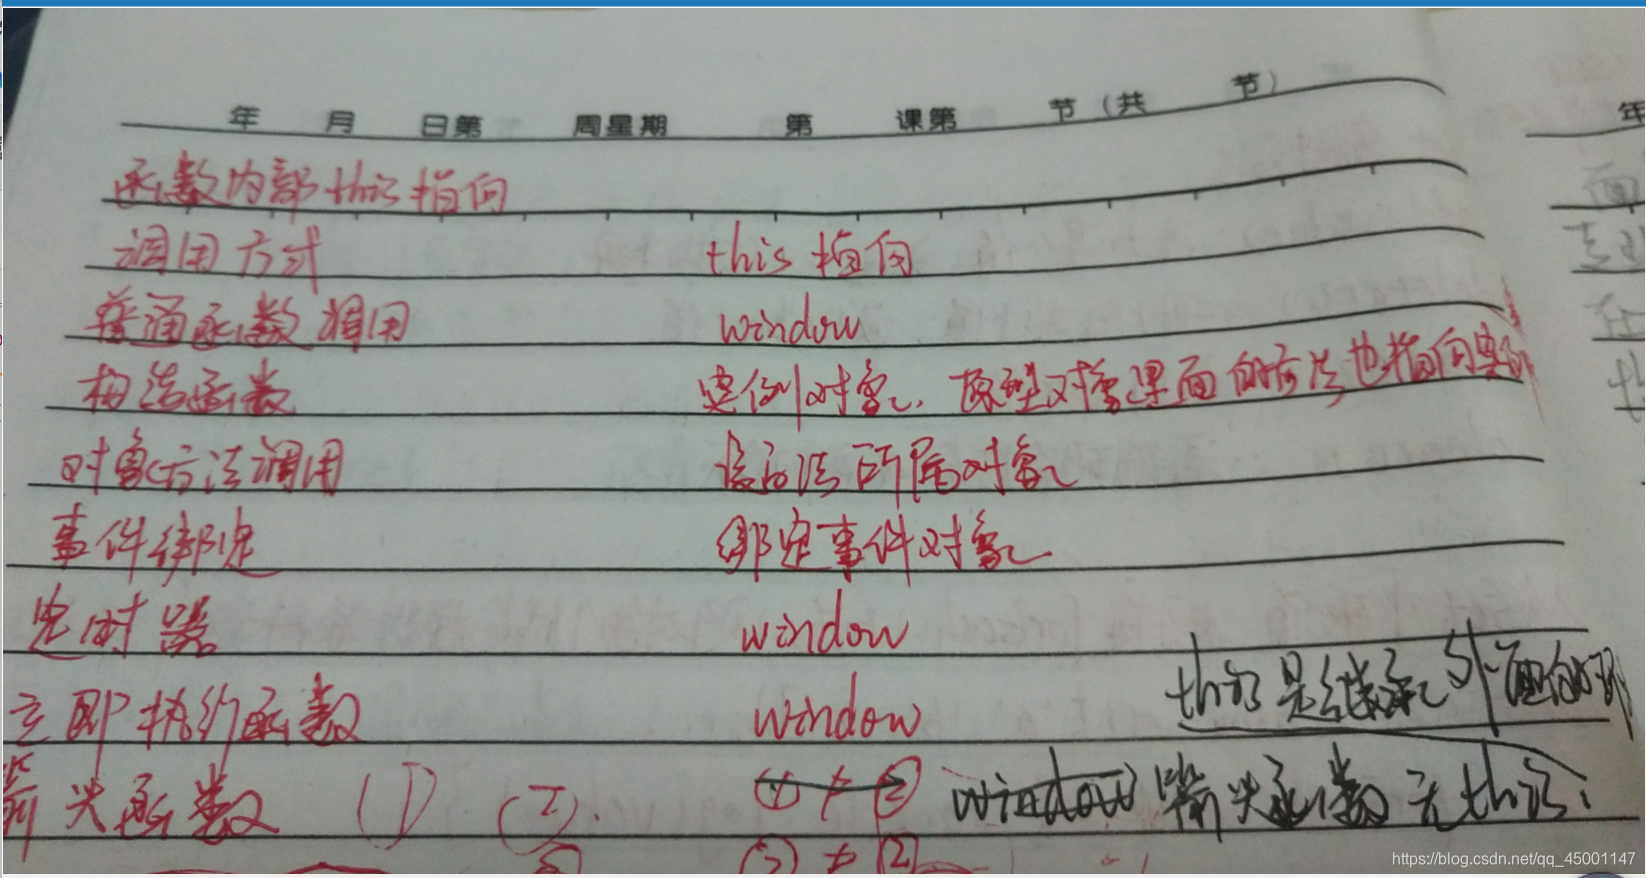 年 月 日第 周星期 第 课第 节（共 节）
函数内部this指向
调用方式 this 指向
普通函数调用 window
构造函数 实例对象、原型对象里面的方法也指向实例
对象方法调用 该方法所属对象
事件绑定 绑定事件对象
定时器 window
立即执行函数 window this是继承外面的
箭头函数 (1) (2). 箭头函数无this
年
面
https://blog.csdn.net/qq_45001147